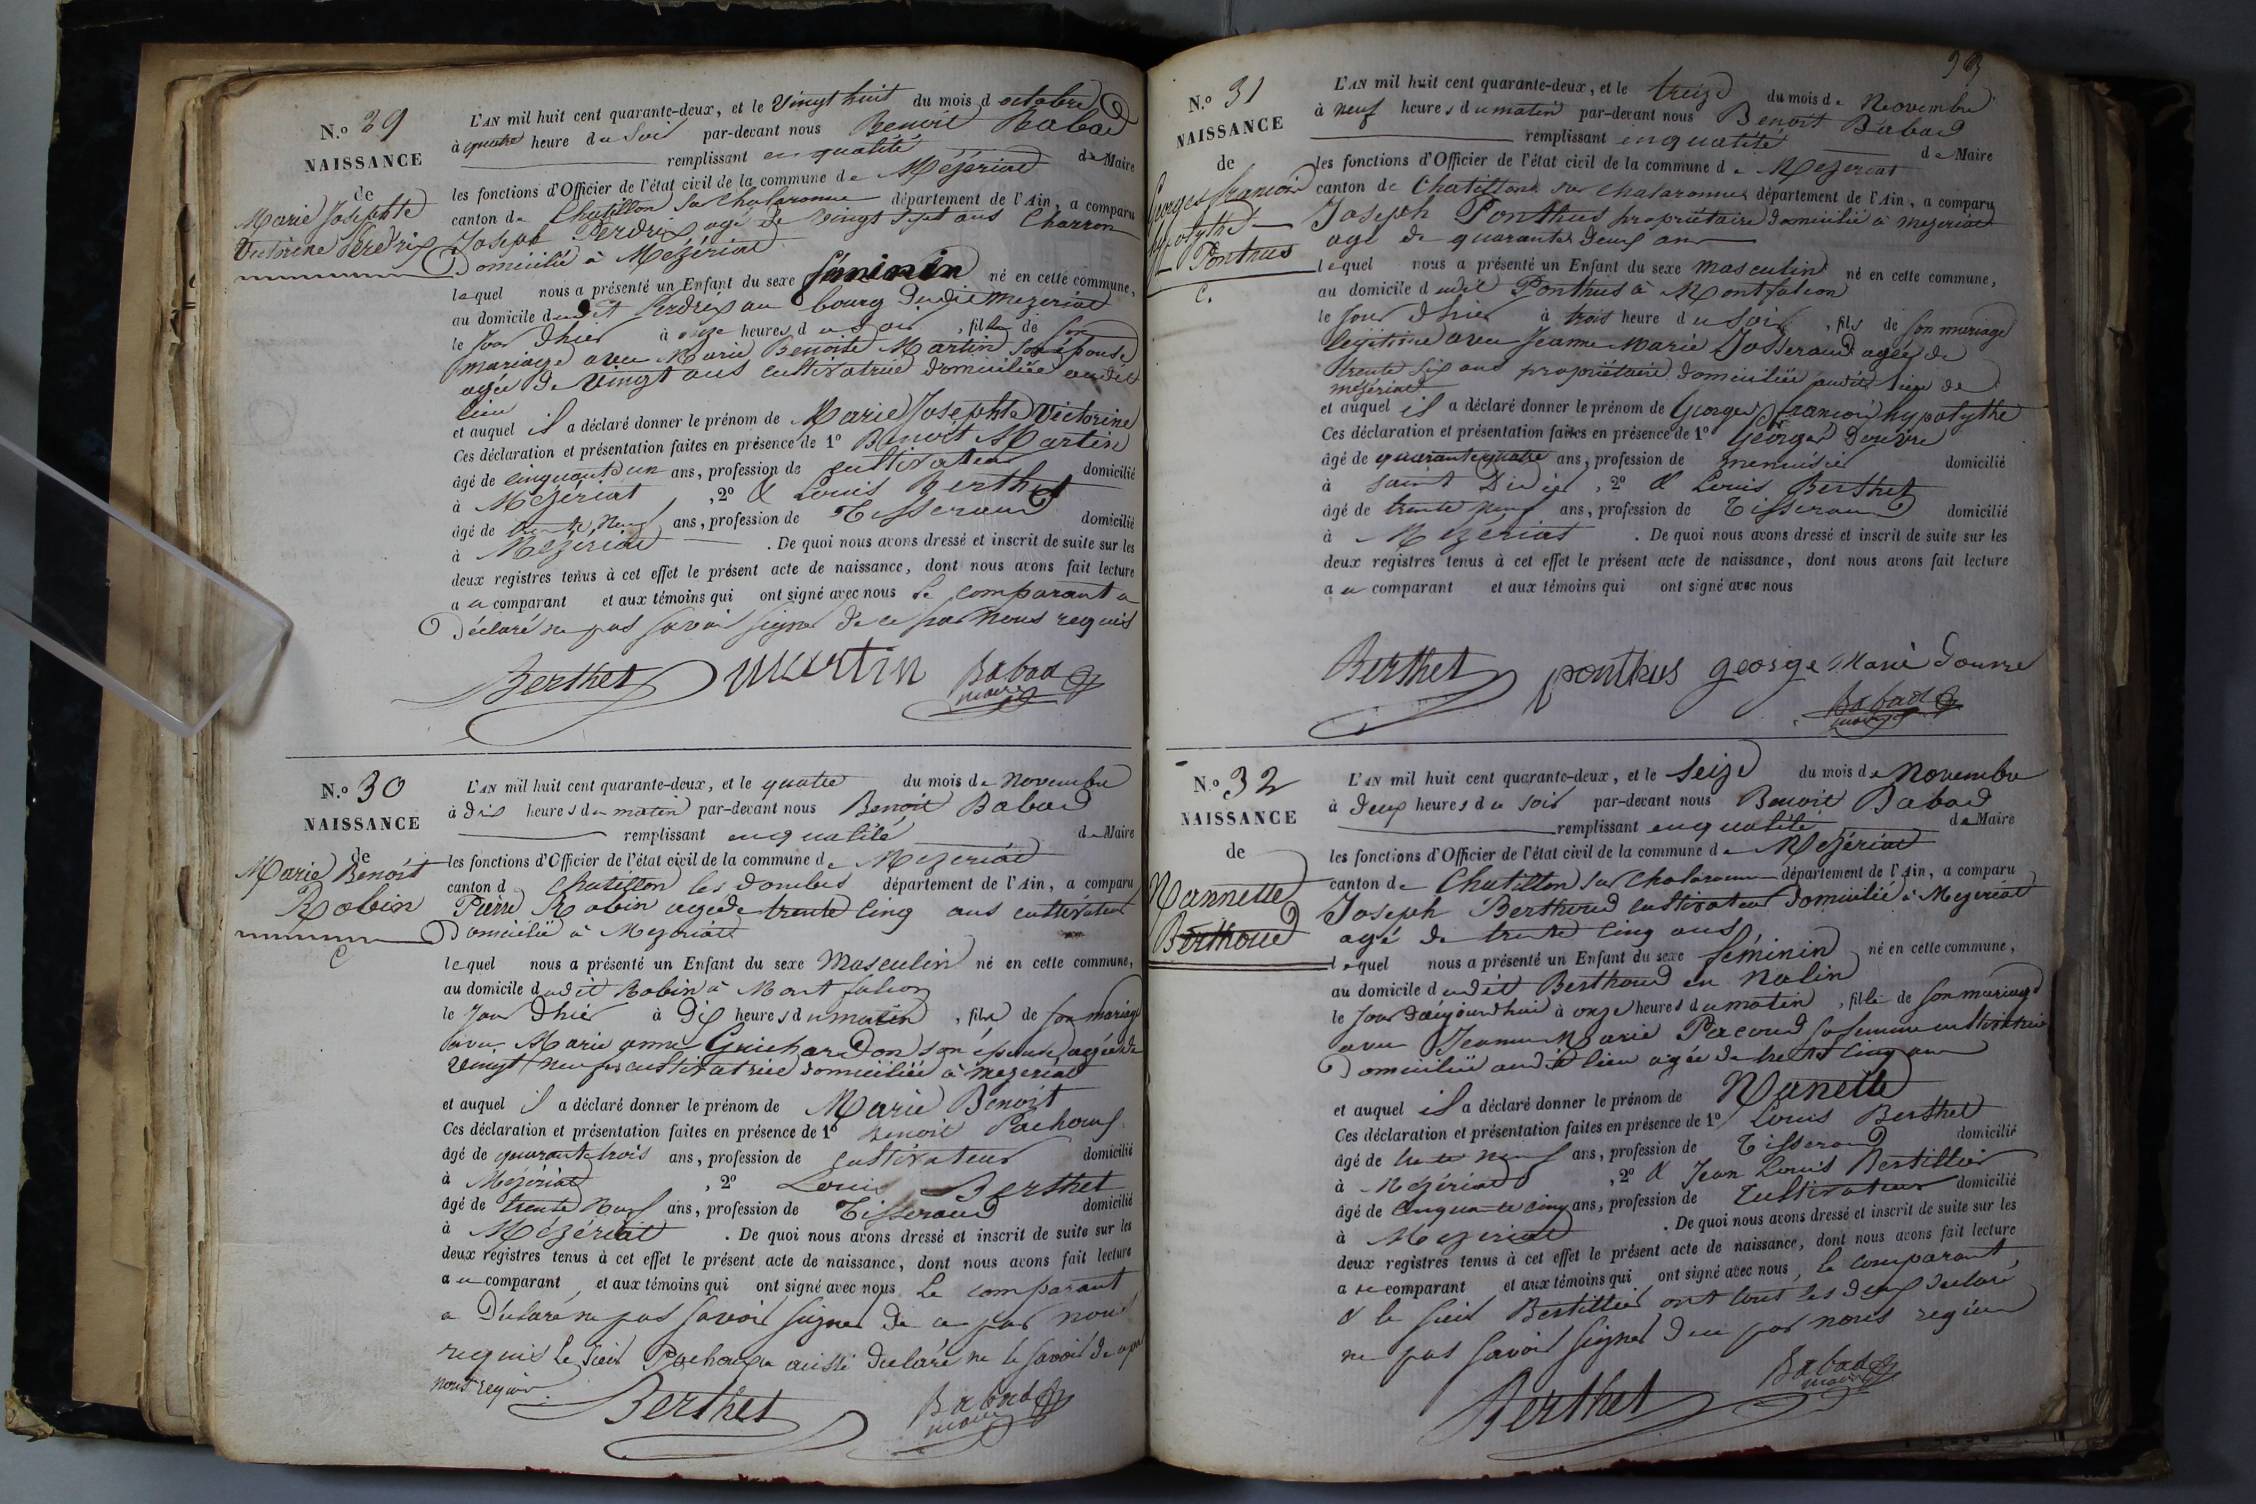 N.o 29
NAISSANCE
de
Marie Josephte
Victorine Perdrix
L'AN mil huit cent quarante-deux, et le Vingt huit du mois d octobre
à quatre heure du Soir par-devant nous Benoit Babad
remplissant en qualité de Maire
les fonctions d'Officier de l'état civil de la commune de Mézériat
canton de Chatillon sur Chalaronne département de l'Ain, a comparu
Joseph Perdrix agé de vingt sept ans Charron
Domicilié à Mézériat
lequel nous a présenté un Enfant du sexe féminin né en cette commune,
au domicile dudit Perdrix au bourg dudit mezeriat
le jour d'hier à onze heures du soir, fille de son
mariage avec Marie Benoite Martin son épouse
agée de vingt ans cultivatrice domiciliée audit
lieu
et auquel il a déclaré donner le prénom de Marie Josephte Victorine
Ces déclaration et présentation faites en présence de 1o Benoit Martin
âgé de cinquante un ans, profession de cultivateur domicilié
à Mézériat, 2o & Louis Berthet
âgé de trente Neuf ans, profession de Tisserand domicilié
à Mézériat. De quoi nous avons dressé et inscrit de suite sur les
deux registres tenus à cet effet le présent acte de naissance, dont nous avons fait lecture
au comparant et aux témoins qui ont signé avec nous Le comparant a
Déclaré ne pas savoir signer de ce par nous requis
Berthet Martin Babad
maire
N.o 30
NAISSANCE
de
Marie Benoit
Robin
L'AN mil huit cent quarante-deux, et le quatre du mois de Novembre
à dix heures du matin par-devant nous Benoit Babad
remplissant en qualité de Maire
les fonctions d'Officier de l'état civil de la commune de Mezeriat
canton d Chatillon les dombes département de l'Ain, a comparu
Pierre Robin agé de trente cinq ans cultivateur
Domicilié à Mezeriat
lequel nous a présenté un Enfant du sexe Masculin né en cette commune,
au domicile dudit Robin à Mont falcon
le jour d'hier à Dix heures du matin, fils de son mariage
avec Marie anne Guichardon son épouse agée de
vingt neuf ans cultivatrice domiciliée à mezeriat
et auquel il a déclaré donner le prénom de Marie Benoit
Ces déclaration et présentation faites en présence de 1o Benoit Pachoux
âgé de quarante trois ans, profession de cultivateur domicilié
à Mézériat, 2o Louis Berthet
âgé de trente Neuf ans, profession de Tisserand domicilié
à Mézériat. De quoi nous avons dressé et inscrit de suite sur les
deux registres tenus à cet effet le présent acte de naissance, dont nous avons fait lecture
au comparant et aux témoins qui ont signé avec nous Le comparant
a Déclaré ne pas savoir signer de ce par nous
requis le sieur Pachoux a aussi declaré ne le savoir de ce par
nous requis
Berthet Babad
maire
93
N.o 31
NAISSANCE
de
Georges françois
hypolythe
Ponthus
C.
L'AN mil huit cent quarante-deux, et le treize du mois de Novembre
à neuf heures du matin par-devant nous Benoit Babad
remplissant en qualité de Maire
les fonctions d'Officier de l'état civil de la commune de Mezeriat
canton de Chatillon sur chalaronne département de l'Ain, a comparu
Joseph Ponthus propriétaire domicilié à mezeriat
agé de quarante deux ans
lequel nous a présenté un Enfant du sexe masculin né en cette commune,
au domicile dudit Ponthus à Montfalcon
le jour d'hier à trois heure du soir, fils de son mariage
légitime avec Jeanne Marie Josserand agée de
trente six ans propriétaire domiciliée audit lieu de
mezériat
et auquel il a déclaré donner le prénom de Georges françois hypolythe
Ces déclaration et présentation faites en présence de 1o Georges
âgé de quarante quatre ans, profession de menuisier domicilié
à saint Didier, 2o & Louis Berthet
âgé de trente neuf ans, profession de Tisserand domicilié
à Mezeriat. De quoi nous avons dressé et inscrit de suite sur les
deux registres tenus à cet effet le présent acte de naissance, dont nous avons fait lecture
au comparant et aux témoins qui ont signé avec nous
Berthet ponthus george Marie
Babad
maire
N.o 32
NAISSANCE
de
Nannette
Berthoud
L'AN mil huit cent quarante-deux, et le seize du mois de Novembre
à deux heures du soir par-devant nous Benoit Babad
remplissant en qualité de Maire
les fonctions d'Officier de l'état civil de la commune de Mézériat
canton de Chatillon sur Chalaronne département de l'Ain, a comparu
Joseph Berthoud cultivateur Domicilié à Mezeriat
agé de trente cinq ans
lequel nous a présenté un Enfant du sexe féminin né en cette commune,
au domicile dudit Berthoud en Nalin
le jour d'aujourd'hui à onze heures du matin, fille de son mariage
avec Jeanne Marie Percoud sa femme cultivatrice
Domiciliée audit lieu agée de trente cinq ans
et auquel il a déclaré donner le prénom de Nanette
Ces déclaration et présentation faites en présence de 1o Louis Berthet
âgé de trente neuf ans, profession de Tisserand domicilié
à Mézériat, 2o & Jean Louis Bertillier
âgé de Cinquante cinq ans, profession de Cultivateur domicilié
à Mezeriat. De quoi nous avons dressé et inscrit de suite sur les
deux registres tenus à cet effet le présent acte de naissance, dont nous avons fait lecture
au comparant et aux témoins qui ont signé avec nous, le comparant
& le sieur Bertillier ont tous les deux declaré
ne pas savoir signer de ce par nous requis
Berthet Babad
maire